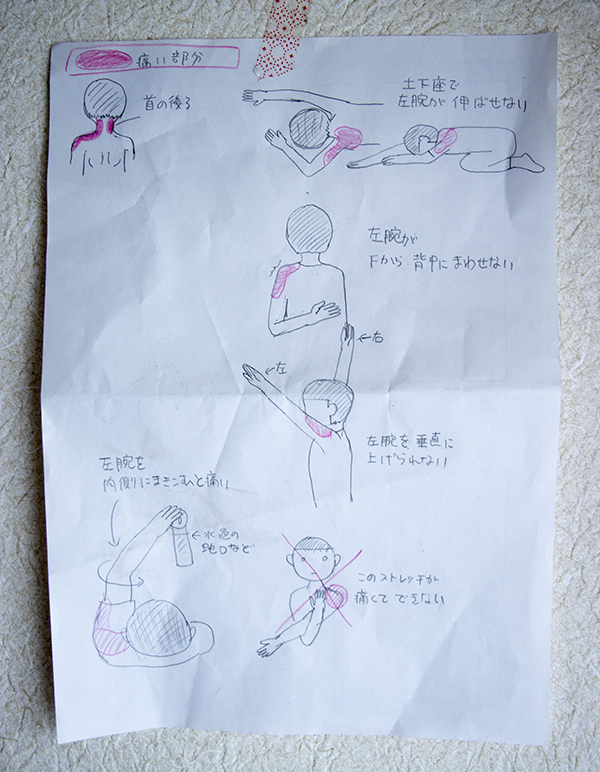 痛い部分
首の後ろ
土下座で
左腕が伸ばせない
左腕が
下から背中にまわせない
←右
←左
左腕を垂直に
上げられない
左腕を
内側にまきこむと痛い
←水道の
蛇口など
このストレッチが
痛くてできない